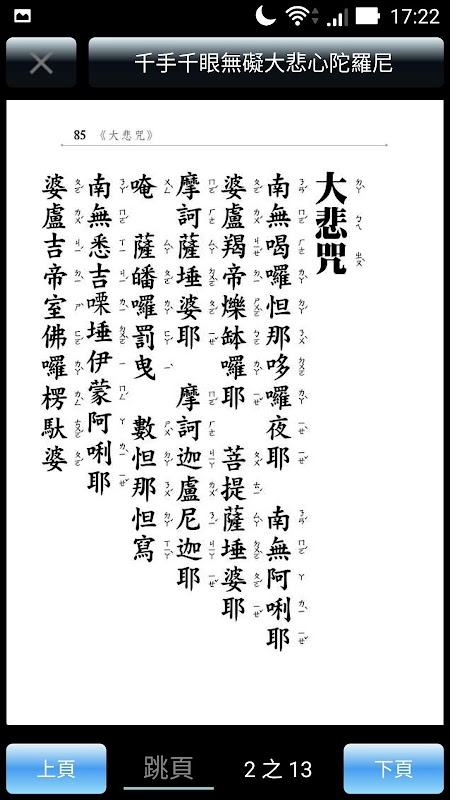 17:22
千手千眼無礙大悲心陀羅尼
85 《大悲咒》
大悲咒
南無喝囉怛那哆囉夜耶 南無阿唎耶
婆盧羯帝爍缽囉耶 菩提薩埵婆耶
摩訶薩埵婆耶 摩訶迦盧尼迦耶
唵 薩皤囉罰曳 數怛那怛寫
南無悉吉㗚埵伊蒙阿唎耶
婆盧吉帝室佛囉楞馱婆
上頁
跳頁
2 之 13
下頁